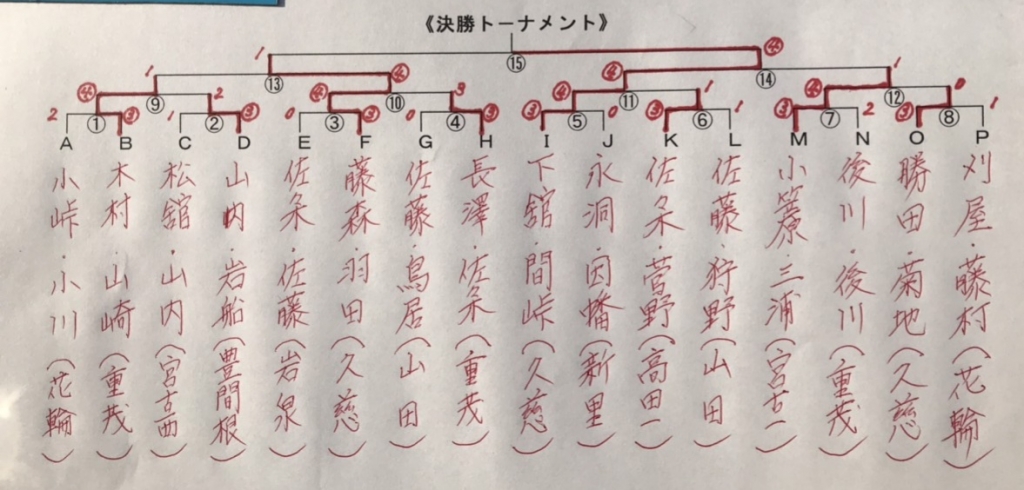 《決勝トーナメント》
1 ④
⑮
1 ④ ④ 1
⑬ ⑭
④ 2 ④ 3 ④ 1 ④ 0
⑨ ⑩ ⑪ ⑫
2 ③ 1 ③ 0 ③ 0 ③ ③ 0 ③ 1 ③ 2 ③ 1
① ② ③ ④ ⑤ ⑥ ⑦ ⑧
A B C D E F G H I J K L M N O P
小峠・小川(花輪)
木村・山崎(重茂)
松舘・山内(宮古西)
山内・岩船(豊間根)
佐々木・佐藤(岩泉)
藤森・羽田(久慈)
佐藤・鳥居(山田)
長澤・佐々木(重茂)
下舘・間峠(久慈)
永洞・因幡(新里)
佐々木・菅野(高田一)
佐藤・狩野(山田)
小笠原・三浦(宮古一)
後川・後川(重茂)
勝田・菊地(久慈)
刈屋・藤村(花輪)